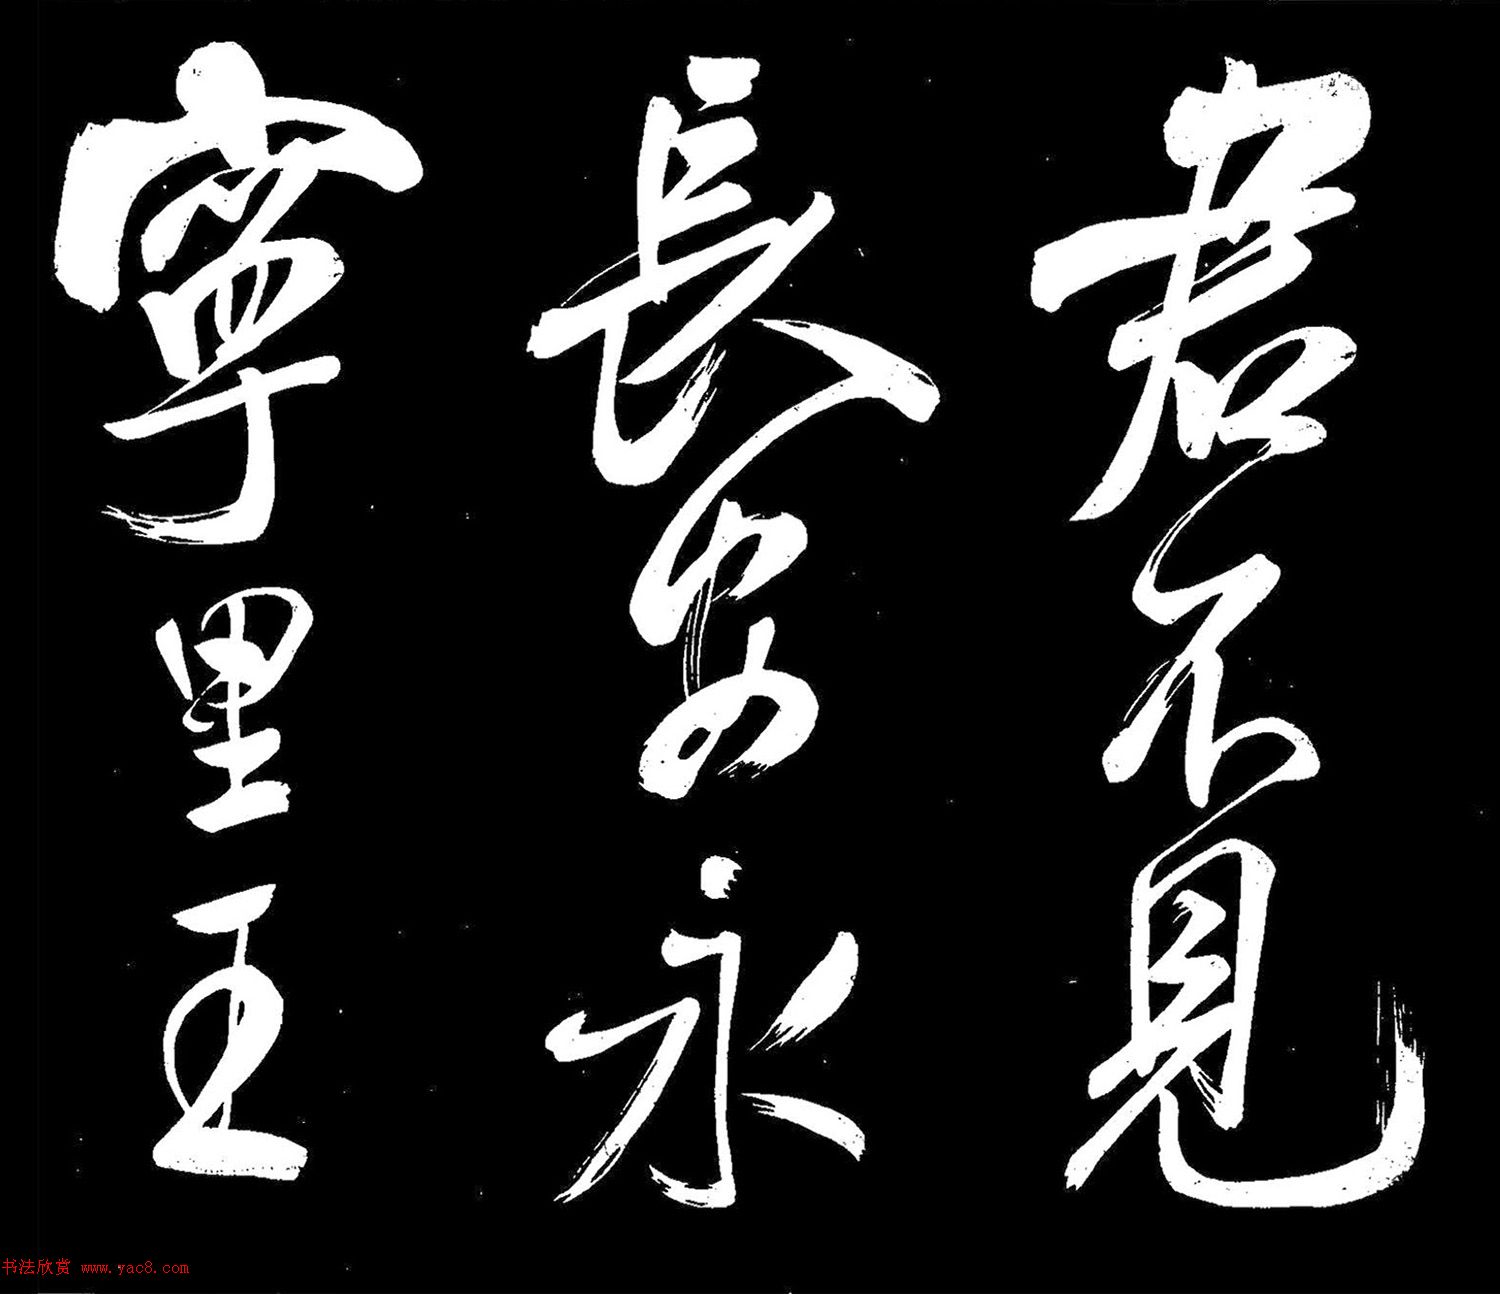 君不見
長安永
寧里王
书法欣赏 www.yac8.com